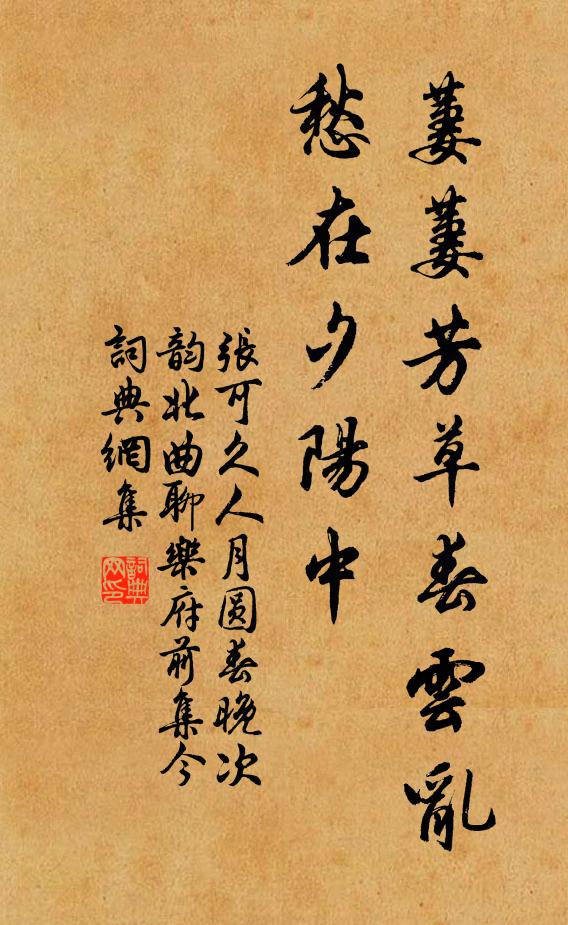 萋萋芳草春雲亂
愁在夕陽中
張可久人月圓春晚次
韵北曲聊樂府前集今
詞典網集
詞典
网印